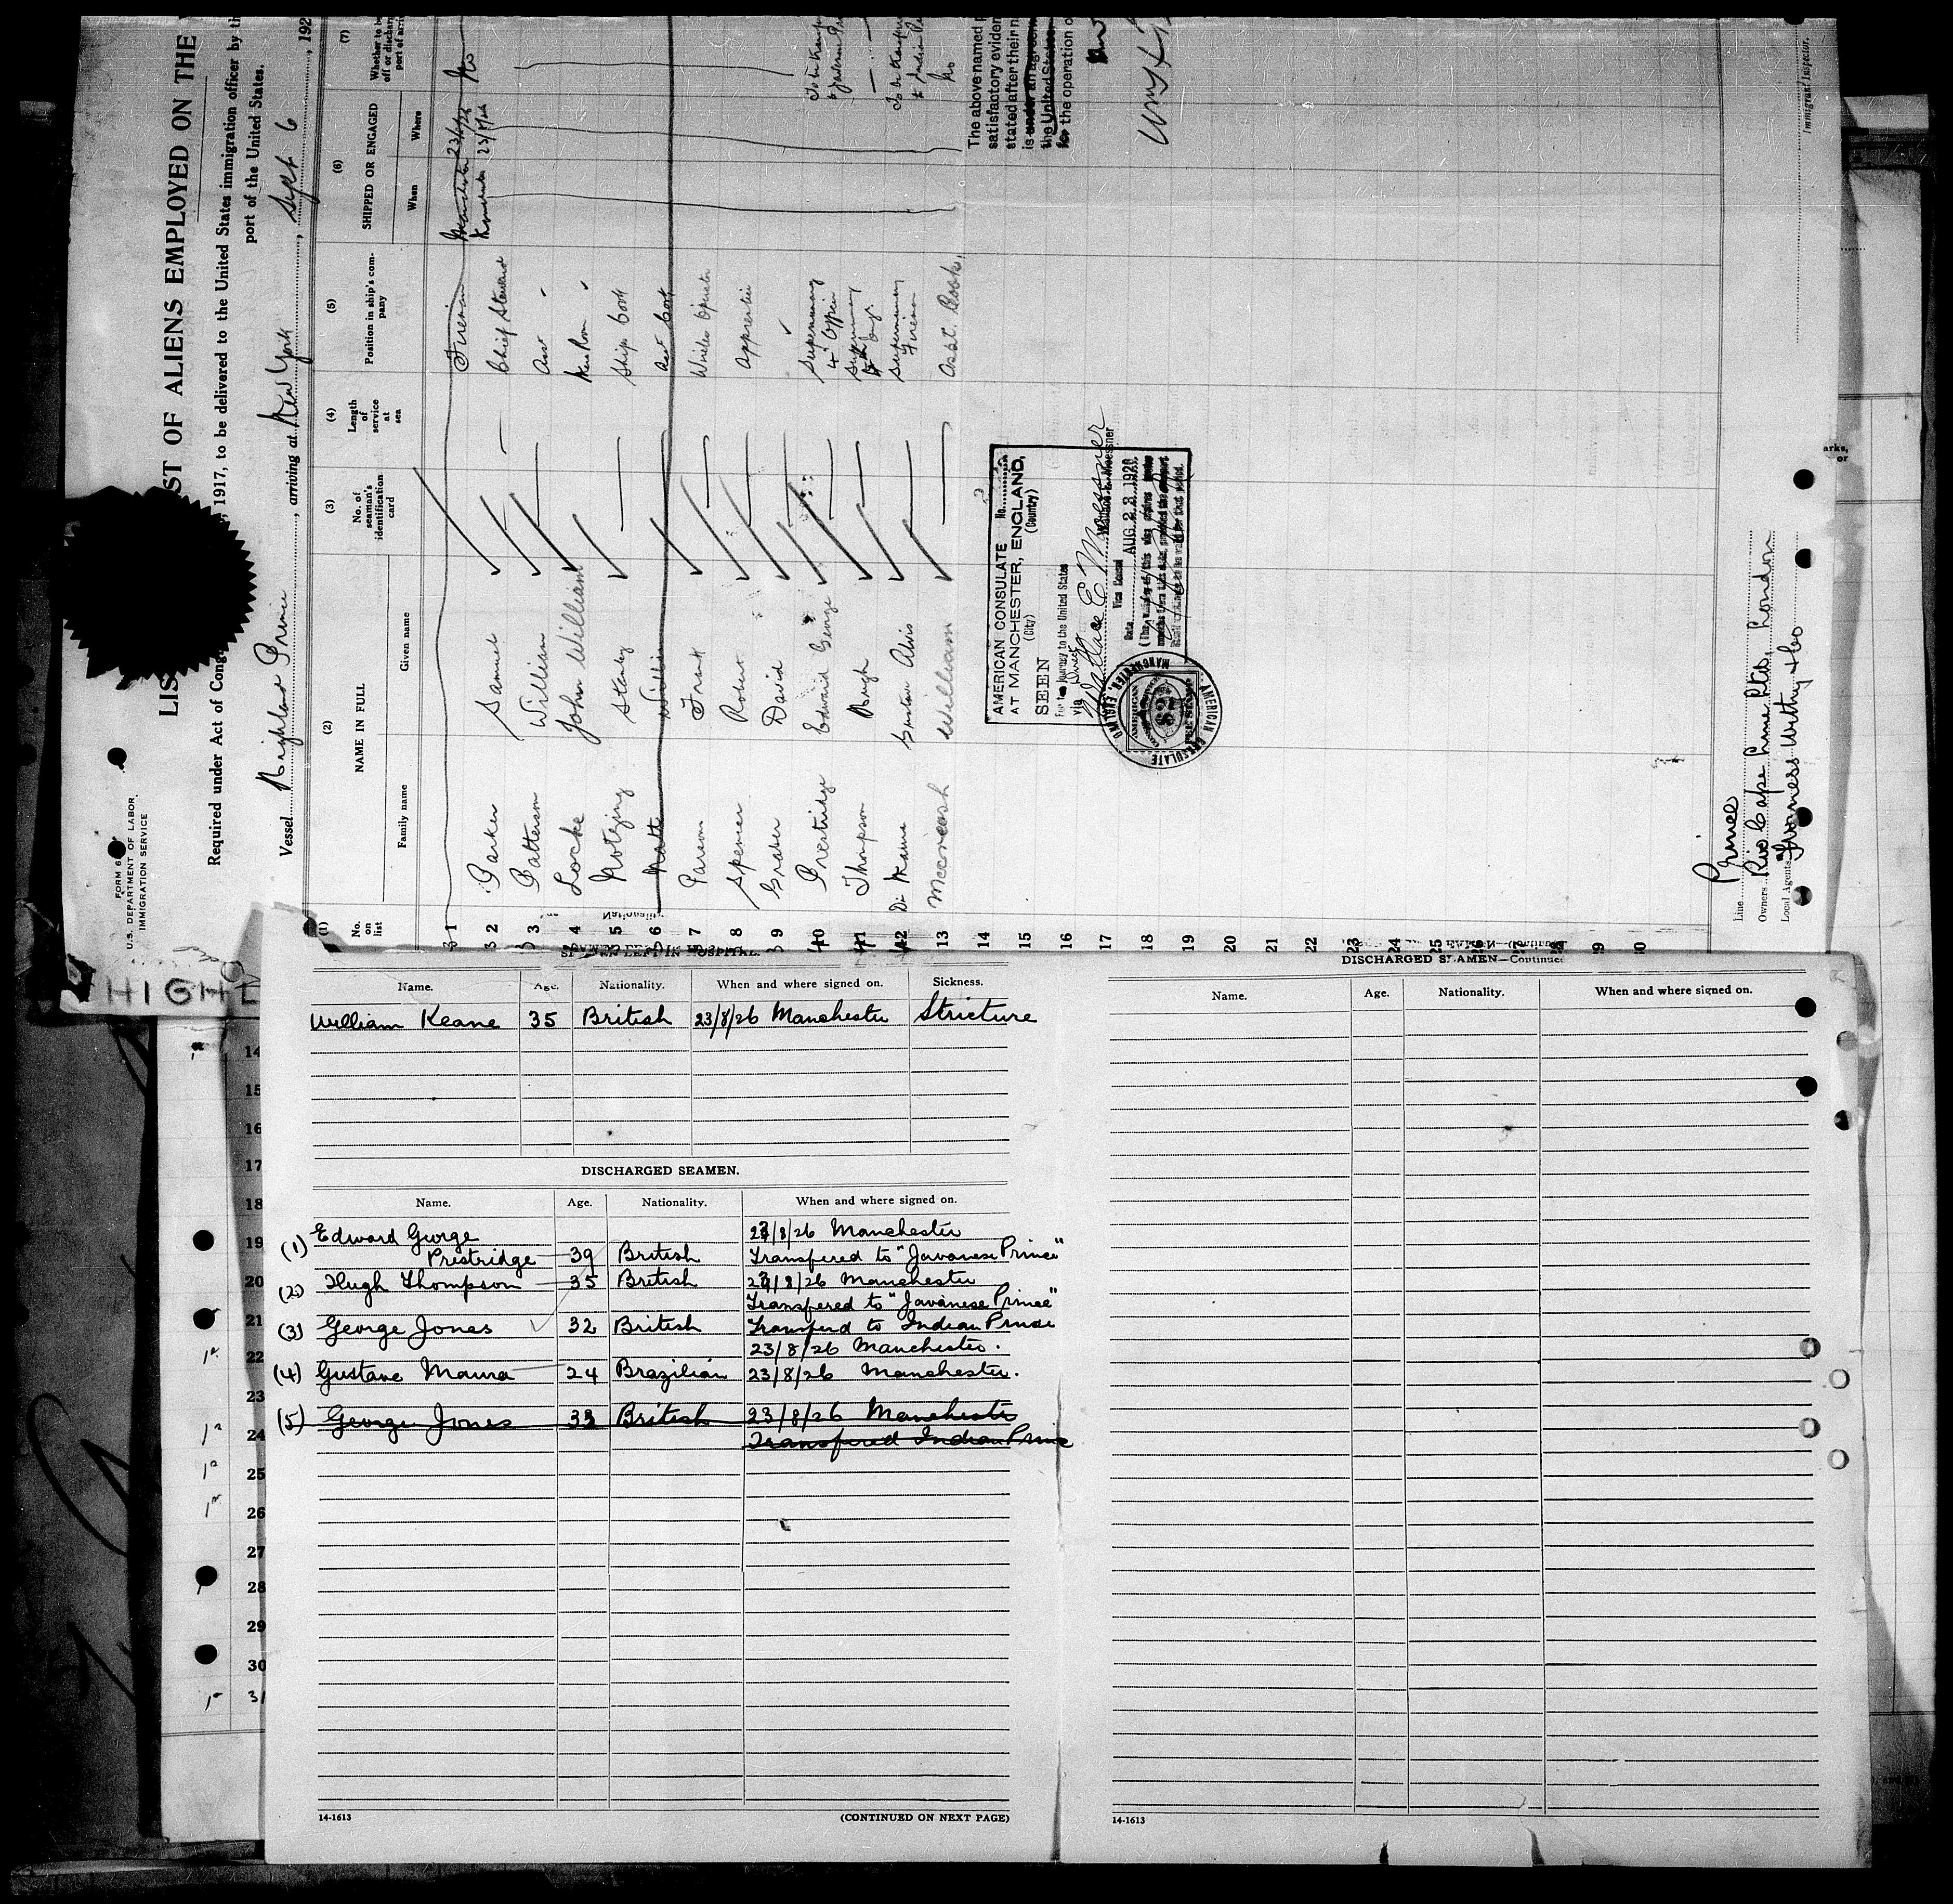 FORM 6
U.S. DEPARTMENT OF LABOR
IMMIGRATION SERVICE
ST OF ALIENS EMPLOYED ON THE
Required under Act of Cong
, 1917, to be delivered to the United States immigration officer by th
port of the United States.
Vessel Highland Prince, arriving at New York, Sept 6, 192
(1) (2) (3) (4) (5) (6) (7)
No. on list
NAME IN FULL
Family name Given name
No. of seaman's identification card
Length of service at sea
Position in ship's company
SHIPPED OR ENGAGED
When Where
Whether to be
off or discharg
port of arriv
1 Fireman Manchester
2 Parker Samuel Chief Steward 23/8/26 No
3 Patterson William Asst "
4 Locke John William Mess Room "
5 Stanley Ships Cook
6 William Asst Cook
7 Parsons Frank Wireless Operator
8 Spencer Robert Apprentice
9 David
10 Prestridge Edward George Supernumary 4th Officer
11 Thompson Hugh Supernumary Engr
12 Supernumary Fireman
13 William Asst. Cook. No
14
15
16
17
18
19
20
21
22
23
24
25
26
27
28
29
30
The above named
satisfactory eviden
stated after their n
is under an agreem
the United States
for the operation o
AMERICAN CONSULATE No.
AT MANCHESTER, ENGLAND,
(City) (Country)
SEEN
For the journey to the United States
via Direct
Wallace E. Moessner
Vice Consul
Date AUG 23 1926
AMERICAN CONSULATE MANCHESTER, ENGLAND
Immigrant Inspector.
Line Prince
Owners Rio Cape Line Ltd, London
Local Agents Furness Withy & Co
HIGHL
SEAMEN LEFT IN HOSPITAL.
Name. Age. Nationality. When and where signed on. Sickness.
William Keane 35 British 23/8/26 Manchester Stricture
DISCHARGED SEAMEN.
Name. Age. Nationality. When and where signed on.
(1) Edward George 23/8/26 Manchester
Prestridge 39 British Transfered to "Javanese Prince"
(2) Hugh Thompson 35 British 23/8/26 Manchester
Transfered to "Javanese Prince"
(3) George Jones 32 British Transferd to Indian Prince
23/8/26 Manchester.
(4) Gustave Maura 24 Brazilian 23/8/26 Manchester.
(5) George Jones 33 British 23/8/26 Manchester
Transfered Indian Prince
14-1613 (CONTINUED ON NEXT PAGE)
DISCHARGED SEAMEN—Continued
Name. Age. Nationality. When and where signed on.
14-1613
14
15
16
17
18
19
20
21
22
23
24
25
26
27
28
29
30
31